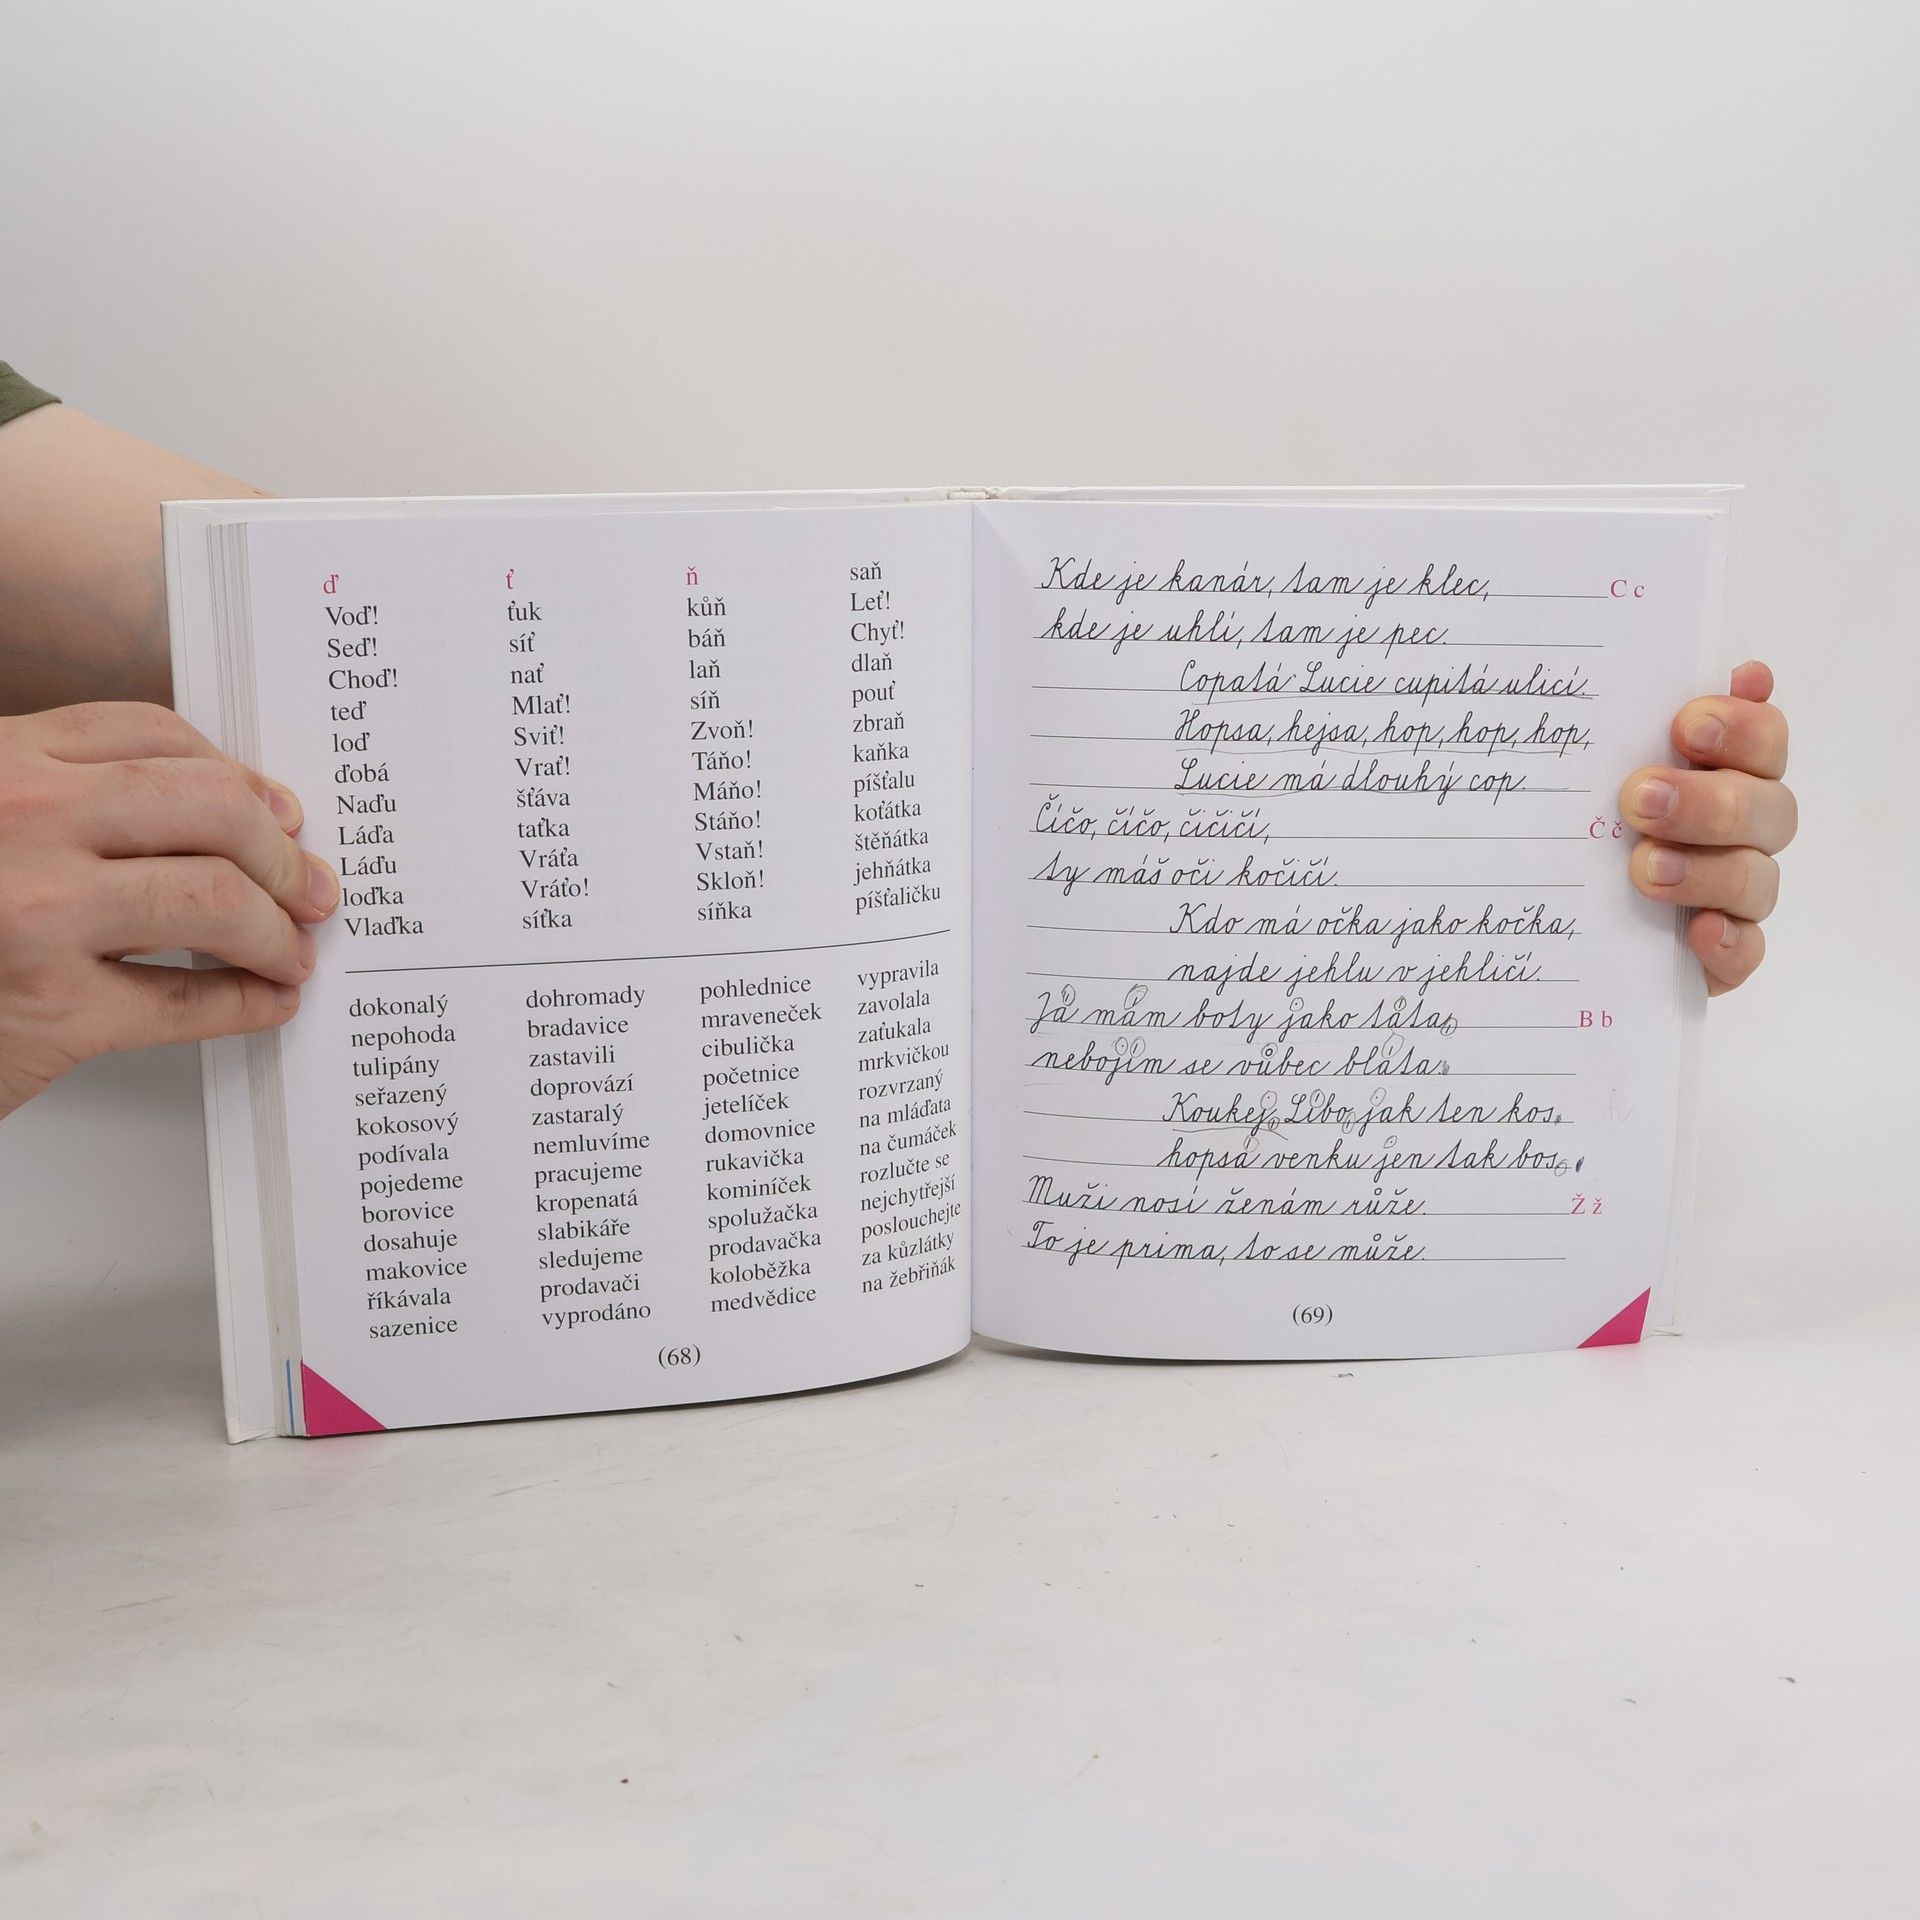 ď
Voď!
Seď!
Choď!
teď
loď
ďobá
Naďu
Láďa
Láďu
loďka
Vlaďka
ť
ťuk
síť
nať
Mlať!
Sviť!
Vrať!
šťáva
taťka
Vráťa
Vráťo!
síťka
ň
kůň
báň
laň
síň
Zvoň!
Táňo!
Máňo!
Stáňo!
Vstaň!
Skloň!
síňka
saň
Leť!
Chyť!
dlaň
pouť
zbraň
kaňka
píšťalu
koťátka
štěňátka
jehňátka
píšťaličku
dokonalý
nepohoda
tulipány
seřazený
kokosový
podívala
pojedeme
borovice
dosahuje
makovice
říkávala
sazenice
dohromady
bradavice
zastavili
doprovází
zastaralý
nemluvíme
pracujeme
kropenatá
slabikáře
sledujeme
prodavači
vyprodáno
pohlednice
mraveneček
cibulička
početnice
jetelíček
domovnice
rukavička
kominíček
spolužačka
prodavačka
koloběžka
medvědice
vypravila
zavolala
zaťukala
mrkvičkou
rozvrzaný
na mláďata
na čumáček
rozlučte se
nejchytřejší
poslouchejte
za kůzlátky
na žebřiňák
(68)
Kde je kanár, tam je klec, C c
kde je uhlí, tam je pec.
Copatá Lucie cupitá ulicí.
Hopsa, hejsa, hop, hop, hop,
Lucie má dlouhý cop.
Číčo, číčo, čičičí, Č č
ty máš oči kočičí.
Kdo má očka jako kočka,
najde jehlu v jehličí.
Já mám boty jako táta, B b
nebojím se vůbec bláta.
Koukej, Líbo, jak ten kos
hopsá venku jen tak bos.
Muži nosí ženám růže. Ž ž
To je prima, to se může.
(69)